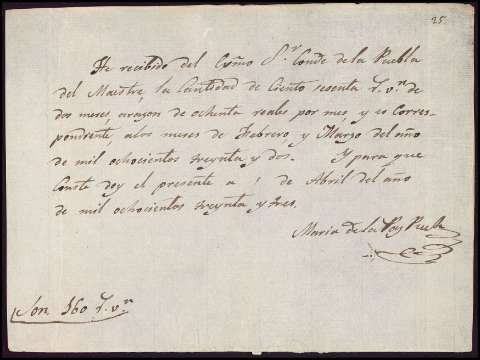 25.
He recibido del Exmo S.r Conde de la Puebla
del Maestre, la Cantidad de Ciento sesenta r.s v.n de
dos meses, arazon de ochenta reales por mes, y es Corres-
pondiente, alos meses de Febrero, y Marzo del año
de mil ochocientos treynta y dos. Y para que
Conste doy el presente a 1 de Abril del año
de mil ochocientos treynta y tres.
Maria de la Paz
Son 160 r.s v.n